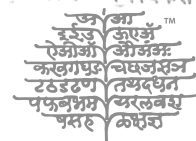 अ आ ™
इईउ ऊएॲ
कखगघङ चछजझञ
टठडढण तथदधन
पफबभम यरलवश
षसह ळक्षज्ञ